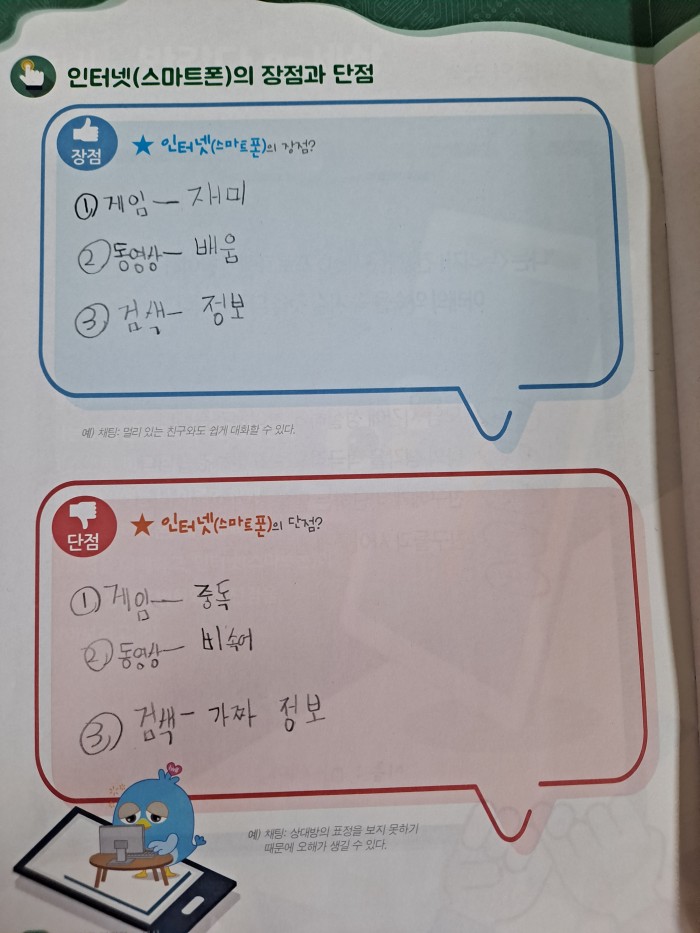 인터넷(스마트폰)의 장점과 단점
장점
★ 인터넷(스마트폰)의 장점?
① 게임 - 재미
② 동영상 - 배움
③ 검색 - 정보
예) 채팅: 멀리 있는 친구와도 쉽게 대화할 수 있다.
단점
★ 인터넷(스마트폰)의 단점?
① 게임 - 중독
② 동영상 - 비속어
③ 검색 - 가짜 정보
예) 채팅: 상대방의 표정을 보지 못하기
때문에 오해가 생길 수 있다.